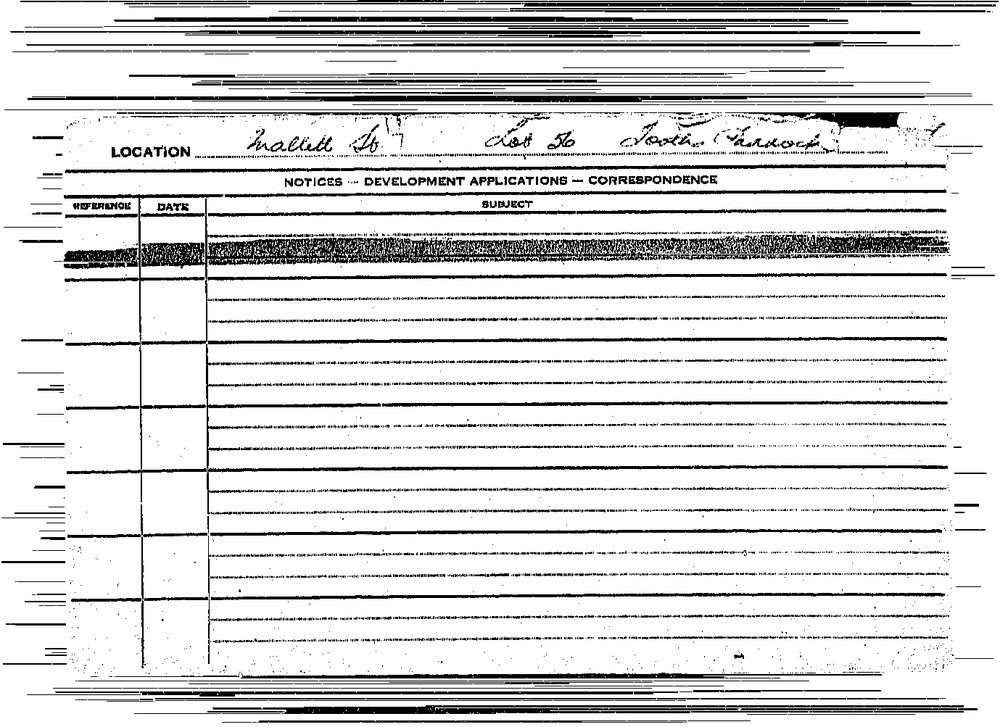 LOCATION Mallett St Lot 56 Tooths Paddock
NOTICES — DEVELOPMENT APPLICATIONS — CORRESPONDENCE
REFERENCE DATE SUBJECT